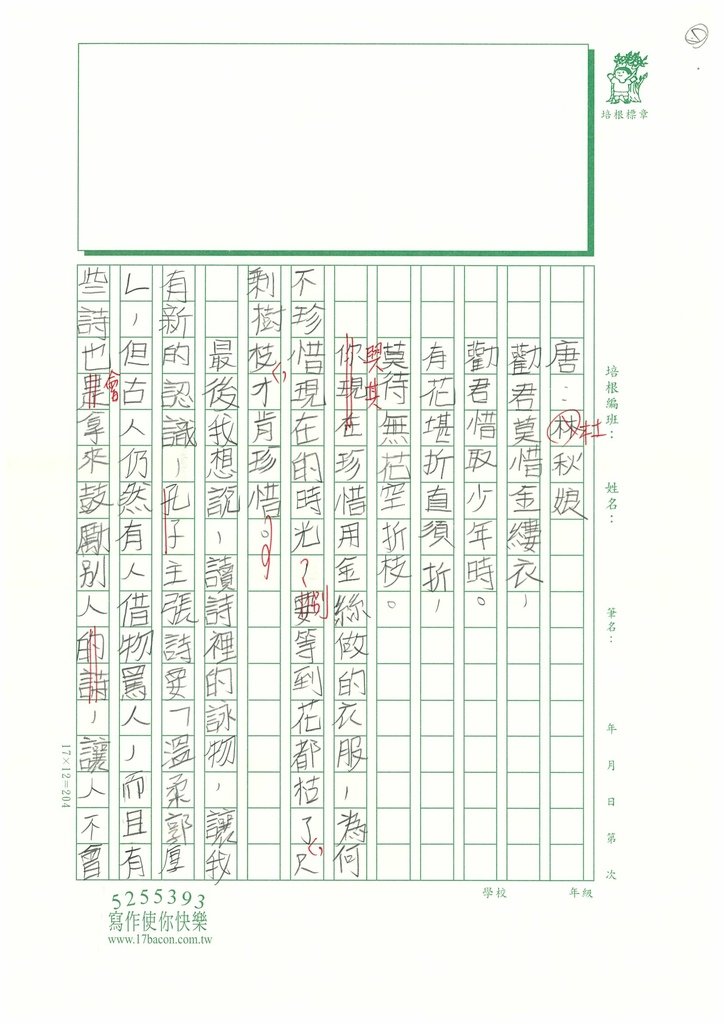 5
培根標章
培根編班：　姓名：　筆名：　年　月　日　第　次
唐：秋秋娘
杜
勸君莫惜金縷衣，
勸君惜取少年時。
有花堪折直須折，
莫待無花空折枝。
與其
你現在珍惜用金絲做的衣服，為何
不珍惜現在的時光？要等到花都枯了只
別
剩樹枝才肯珍惜。
最後我想說，讀詩裡的詠物，讓我
有新的認識，孔子主張詩要「溫柔郭厚
」，但古人仍然有人借物罵人，而且有
些詩也是拿來鼓勵別人的詩，讓人不會
會
17×12=204
學校　年級
5255393
寫作使你快樂
www.17bacon.com.tw